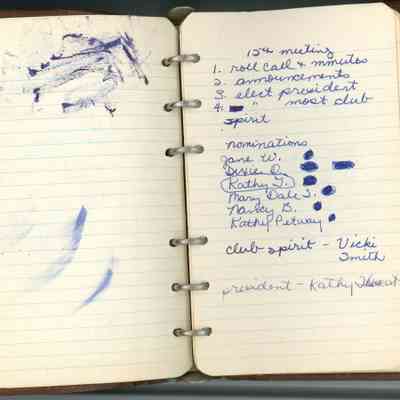 12th meeting
1. roll call & minutes
2. announcements
3. elect president
4. " most club
spirit
nominations
Jane W.
D.
Kathy T.
Mary Dale S.
Nancy B.
Kathy Petway
club spirit - Vicki
Smith
president - Kathy